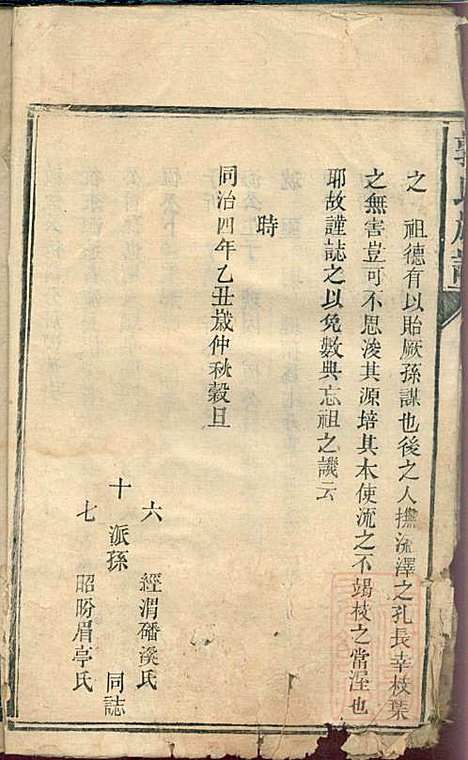 之　祖德有以貽厥孫謀也後之人撫流澤之孔長幸枝葉
之無害豈可不思浚其源培其本使流之不竭枝之常渥也
耶故謹誌之以免數典忘祖之譏云
時
同治四年乙丑歲仲秋穀旦
六　經渭磻溪氏
十　派孫　同誌
七　昭盼眉亭氏